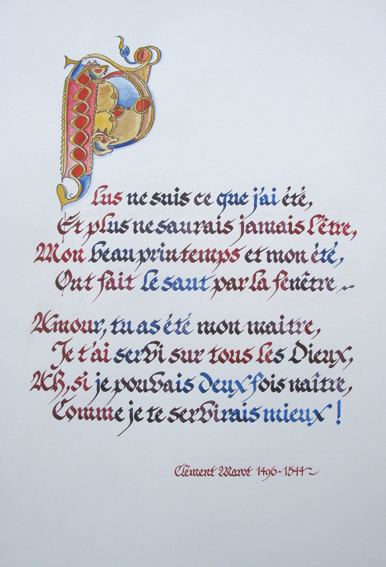 Plus ne suis ce que j'ai été,
Et plus ne saurais jamais l'être,
Mon beau printemps et mon été,
Ont fait le saut par la fenêtre~
Amour, tu as été mon maitre,
Je t'ai servi sur tous les Dieux,
Ah, si je pouvais deux fois naître,
Comme je te servirais mieux !
Clément Marot 1496-1544~